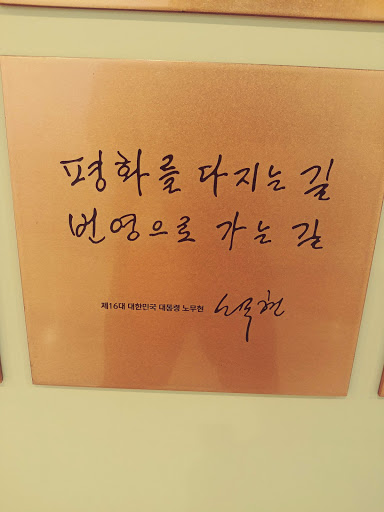 평화를 다지는 길
번영으로 가는 길
제16대 대한민국 대통령 노무현 노무현